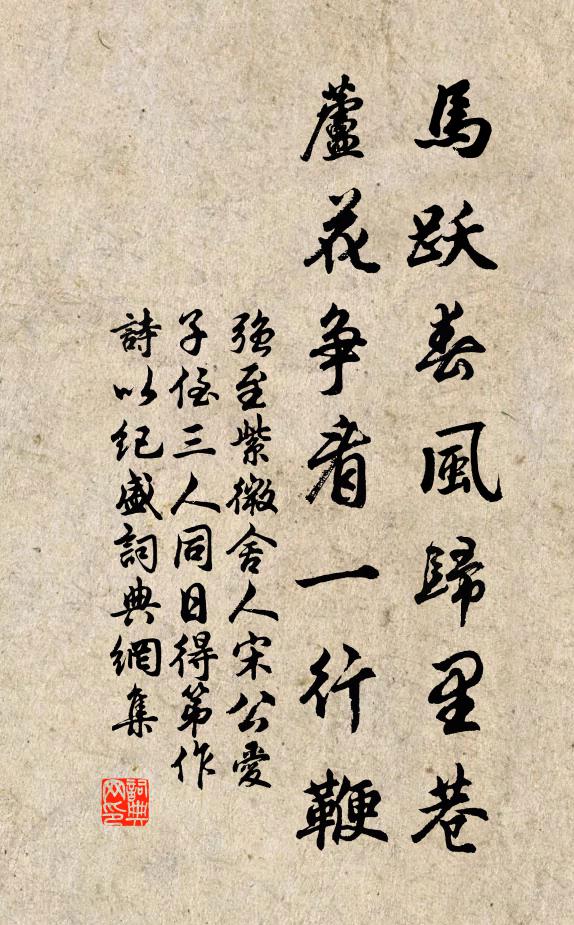 馬跃春風歸里巷
蘆花争看一行鞭
强至紫微舍人宋公愛
子侄三人同日得第作
詩以紀盛詞典網集
詞典网印